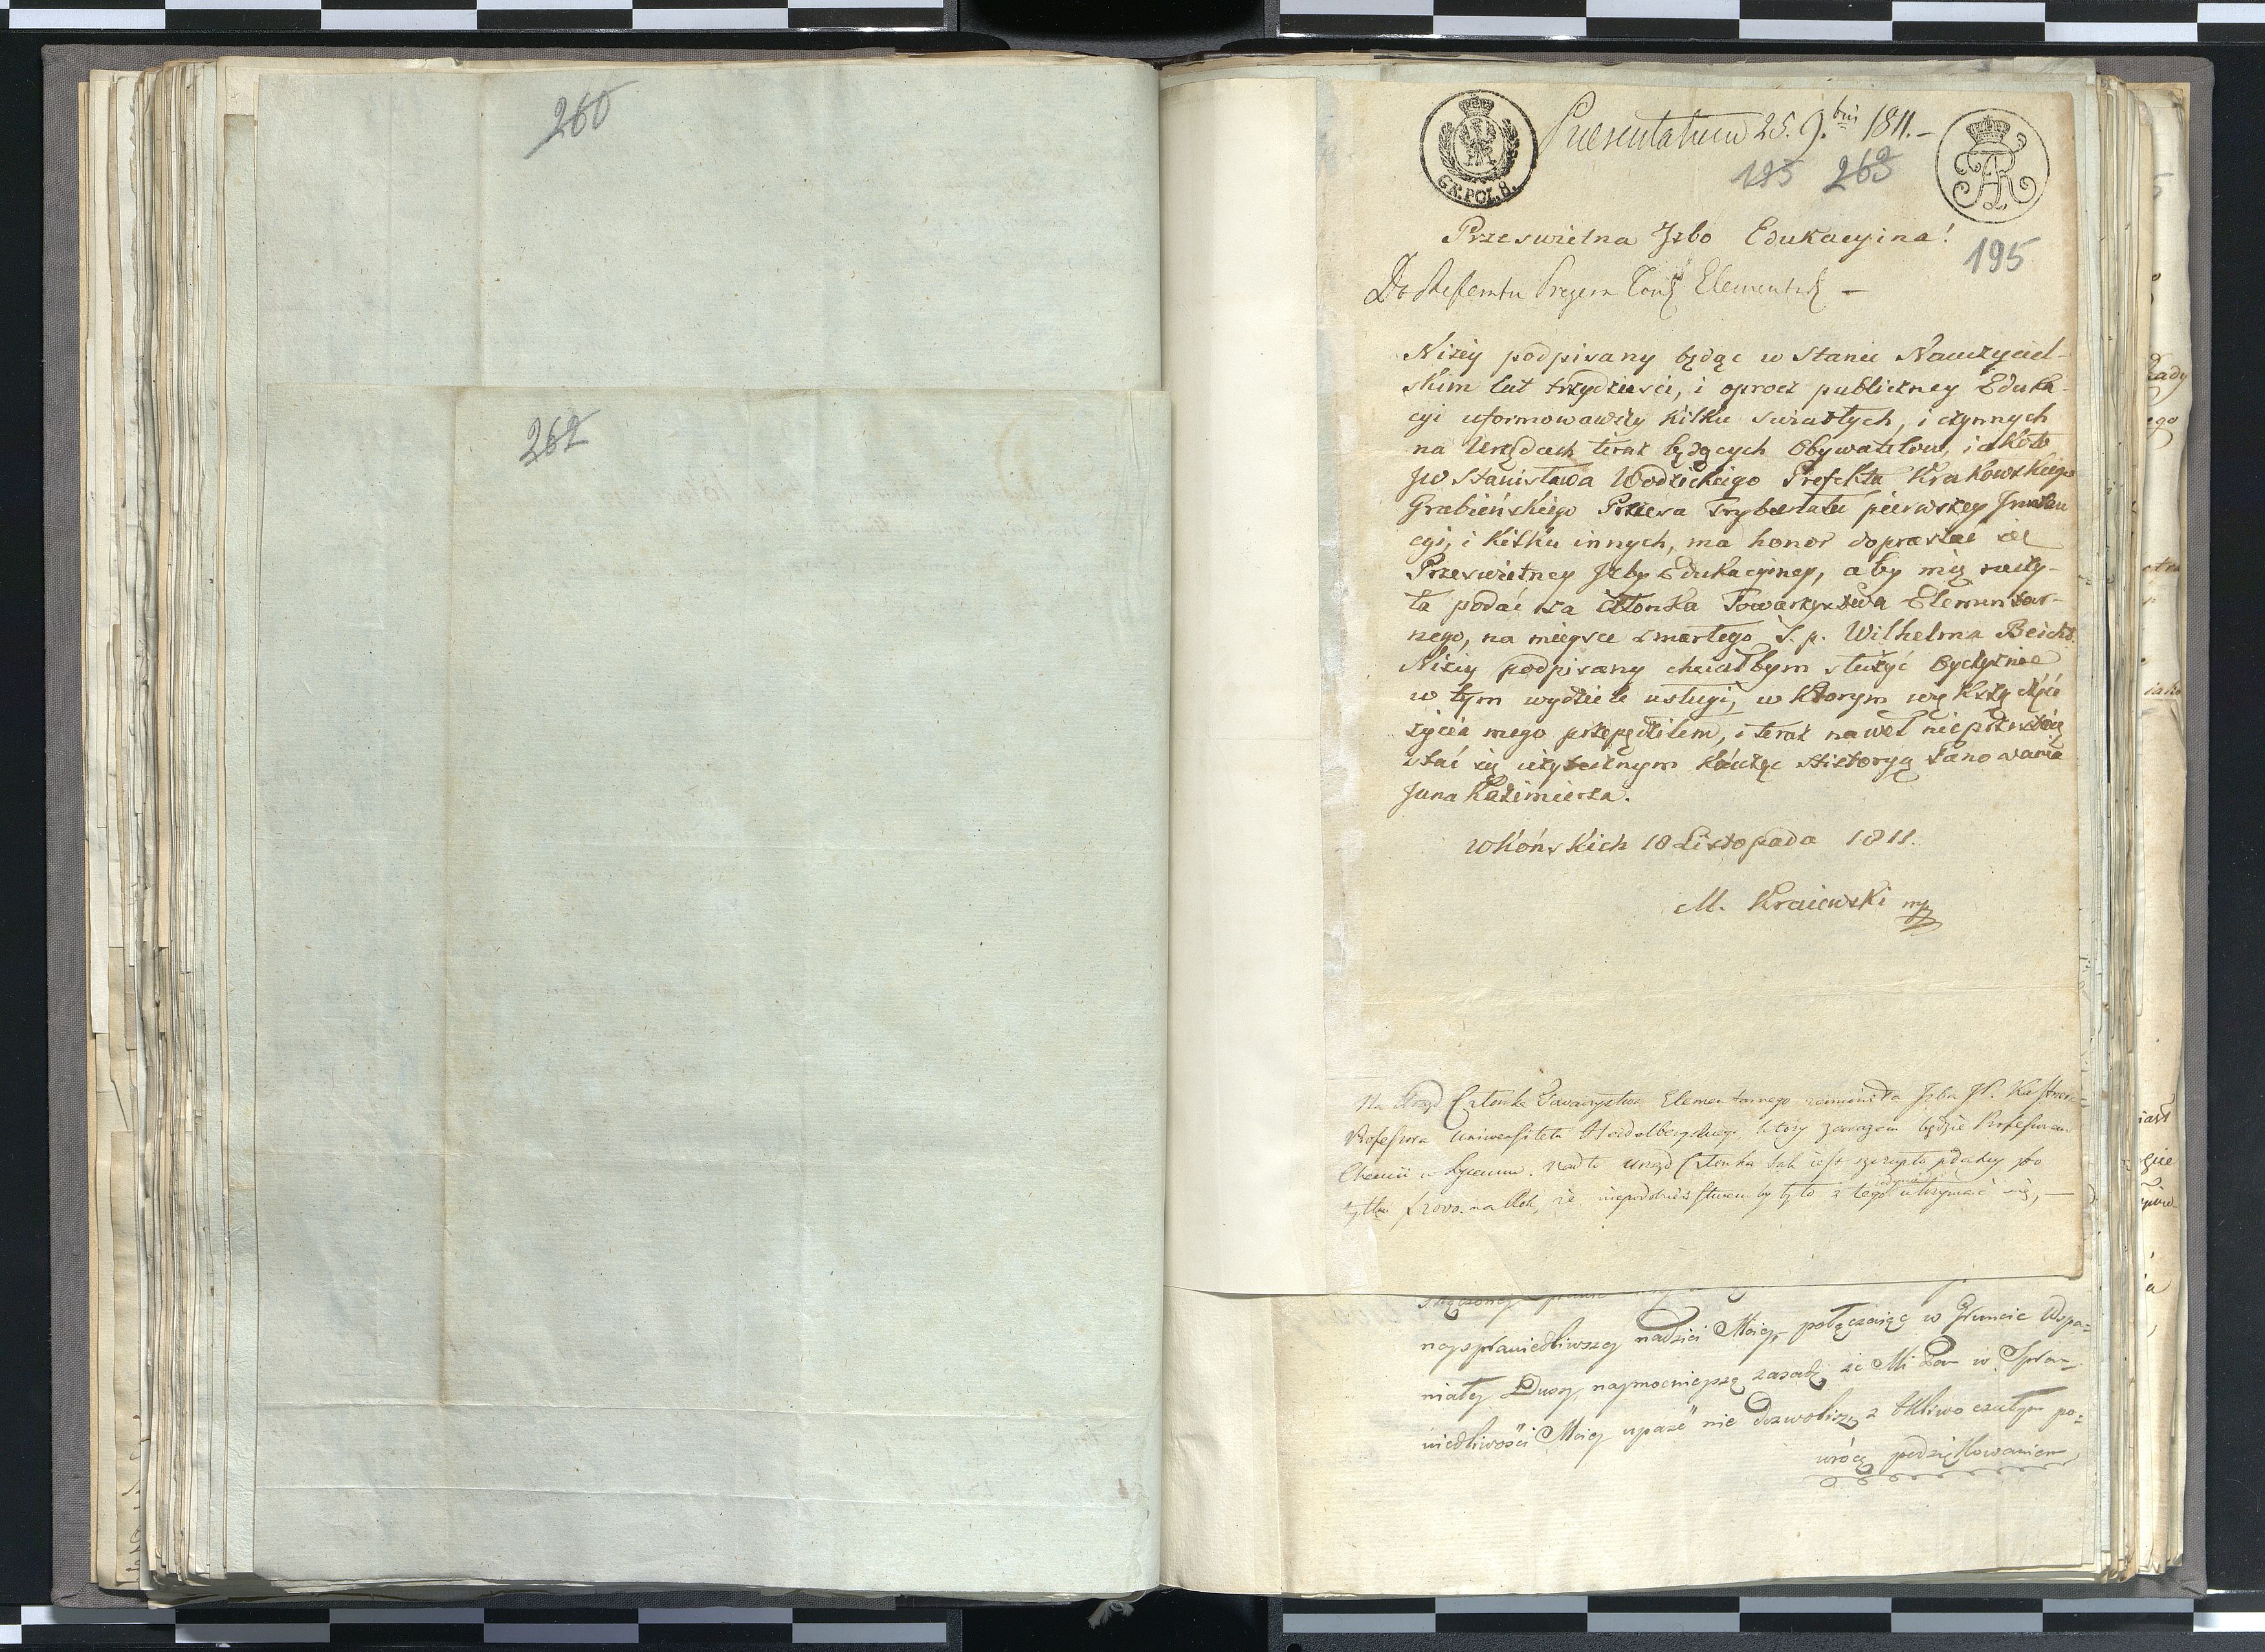 260
262
Praesentatum 25. 9.bris 1811.-
GR. POL. 8.
195 263
Prześwietna Jzbo Edukacyina!
195
Do Referntu Prezesa Tow Elementar —
Niżey podpisany będąc w Stanie Nauczyciel-
skim lat trzydzieści, i oprocz publiczney Eduka-
cyi uformowawszy kilku światłych, i czynnych
na Urzędach teraz będących Obywatelow, iakoto
JW Stanisława Wodzickiego Prefekta Krakowskiego
Grabieńskiego Prezesa Trybunału pierwszey Jnstan
cyi, i kilku innych, ma honor dopraszać się
Prześwietney Jzby Edukacyiney, aby mię raczy-
ła podać za Członka Towarzystwa Elementar-
nego, na mieysce zmarłego ś. p. Wilhelma
Niżey podpisany chciałbym służyć Oyczyznie
w tym wydziele usługi, w ktorym większą część
życia mego przepędziłem, i teraz nawet nieprzestaię
stać się użytecznym kończąc Historyą Panowania
Jana Kazimierza.
w Końskich 18 Listopada 1811.
M. Kraiewski mp
Na Urząd Członka Towarzystwa Elementarnego Jzba JP. Kastnera
Professora Uniwersitetu Heidelbergskiego który zarazem będzie Professorem
Chemii w Lyceum. Nadto urząd Członka tak iest szczupło płatny bo
tylko na Rok, że niepodobieństwem by było z tego utrzymać się, —
nayspráwiedliwszey nadziei Moiey, połączaiąc w Gruncie Wspa=
niałey Duszy, naymocnieyszą zasadę że Mi Pan w Spra=
wiedliwości Moiey upaść nie dozwolisz, z tkliwo czułym po=
wrócę podziękowaniem